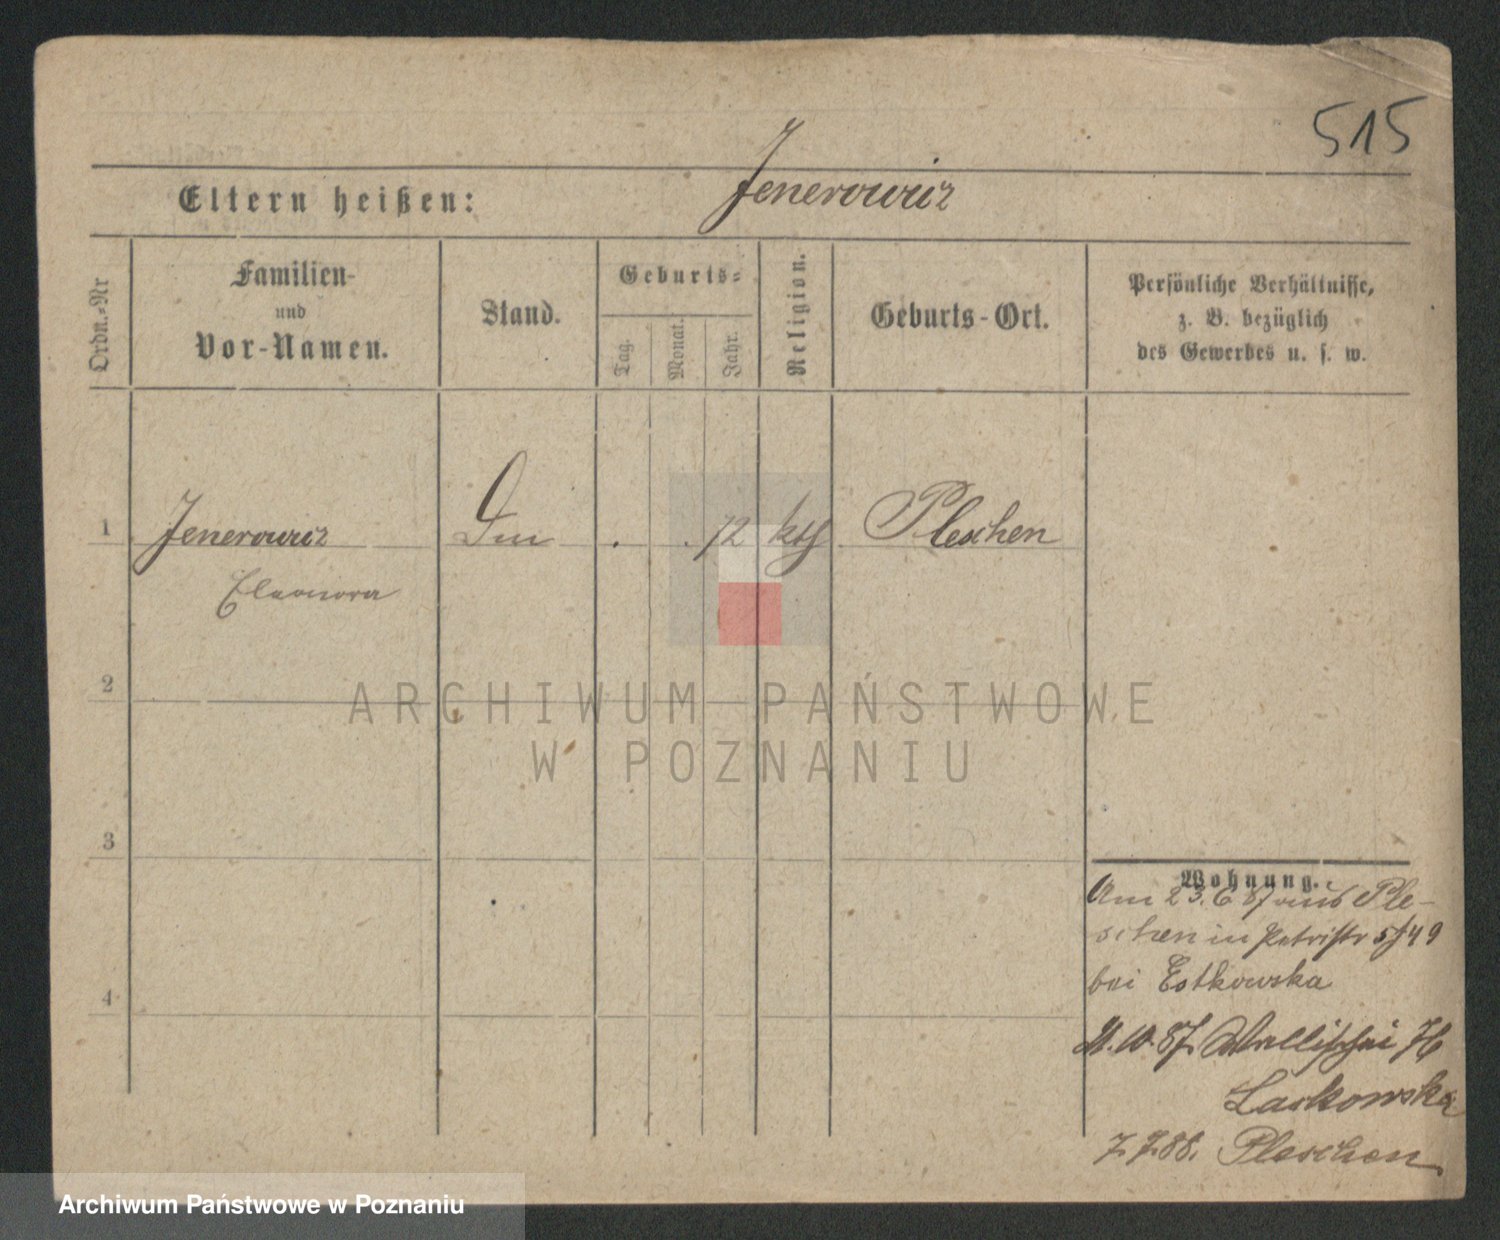 515
Eltern heißen: Jenerowicz
Ordn.-Nr
Familien-
und
Vor-Namen.
Stand.
Geburts-
Tag.
Monat.
Jahr.
Religion.
Geburts-Ort.
Persönliche Verhältnisse,
z. B. bezüglich
des Gewerbes u. s. w.
1 Jenerowicz 72 kth Pleschen
Eleonora
2
3
4
Wohnung.
Am 23.6 87 aus Ple-
schen in Petristr
bei Estkowska
10.87 Wallischei
Laskowska
7.7.88. Pleschen
ARCHIWUM PAŃSTWOWE
W POZNANIU
Archiwum Państwowe w Poznaniu